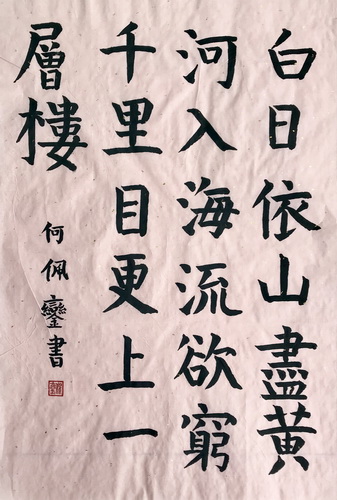 白日依山盡黄
河入海流欲窮
千里目更上一
層樓
何佩鑾書